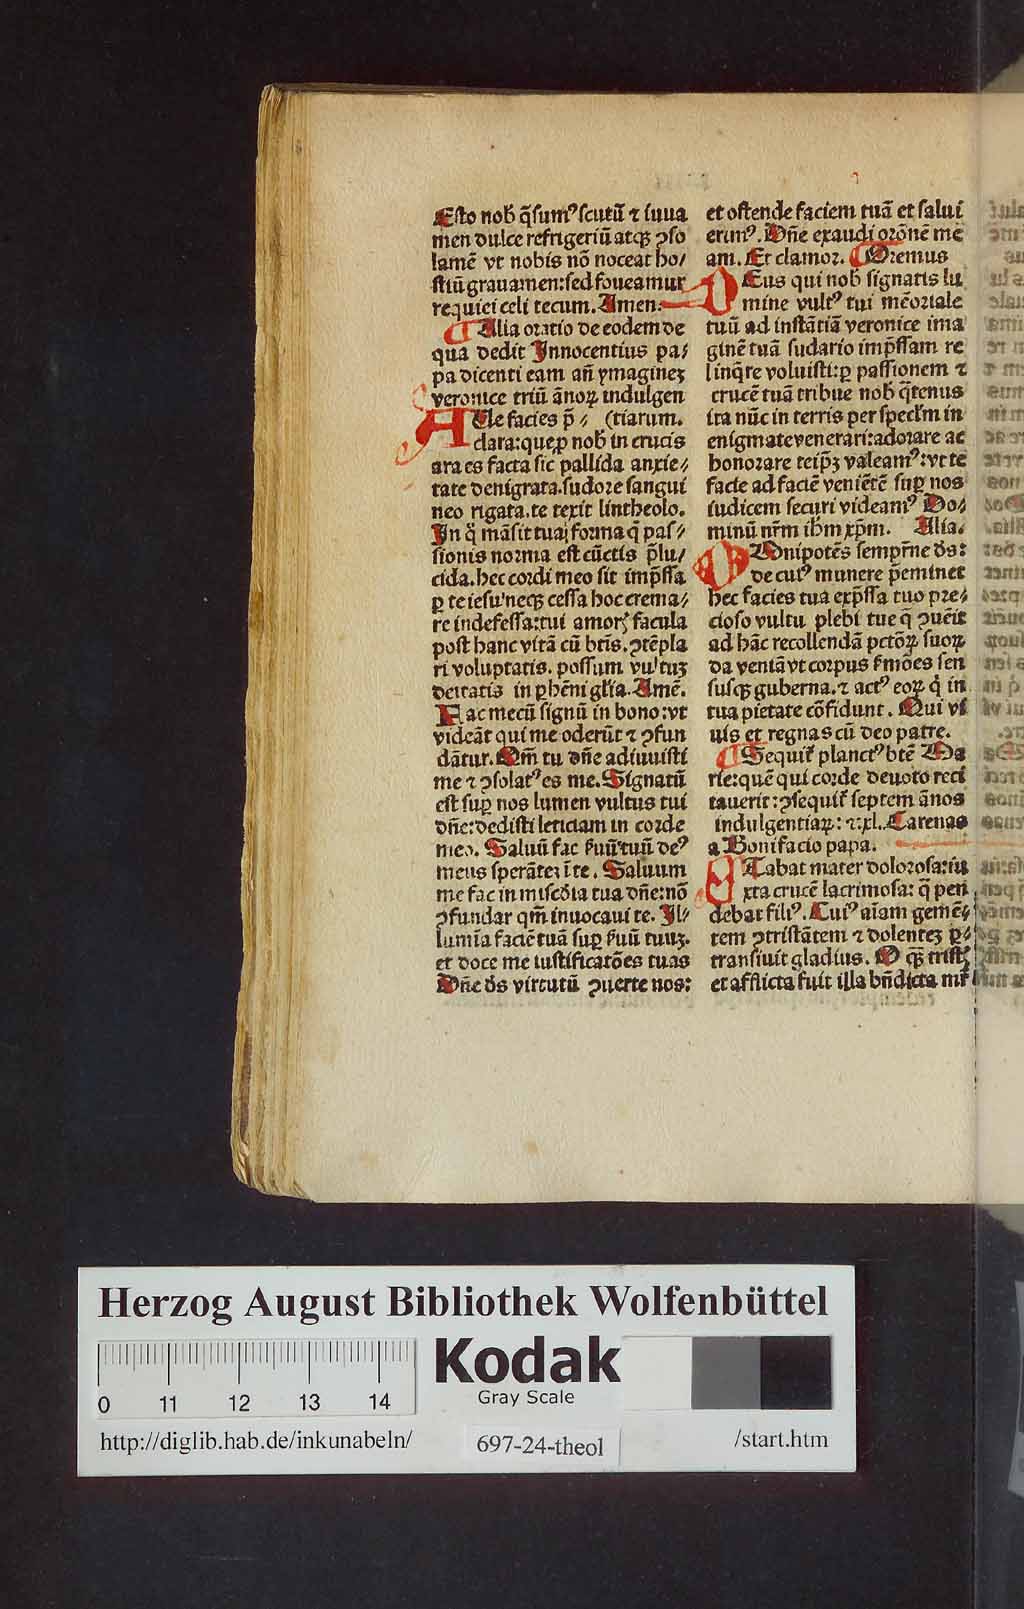 Esto nob̃ q̃sumꝰ scutũ ⁊ iuua
men dulce refrigeriũ atqꝫ ꝯso
lamẽ vt nobis nõ noceat ho⸗
stiũ grauamen: sed foueamur
requiei celi tecum. Amen:
Alia oratio de eodem de
qua dedit Innocentius pa⸗
pa dicenti eam añ ymaginez
veronice triũ ãnoꝝ indulgen
AUe facies p̃⸗ (tiarum.
clara: que ꝓ nob̃ in crucis
ara es facta sic pallida anxie⸗
tate denigrata. sudore sangui
neo rigata. te texit lintheolo.
In q̊ mãsit tua; forma q̃ pas⸗
sionis norma est cũctis p̃lu⸗
cida. hec cordi meo sit imp̃ssa
ꝑ te iesu' neqꝫ cessa hoc crema⸗
re indefessa: tui amorꝭ facula
post hanc vitã cũ btĩs. ꝯtẽpla
ri voluptatis. possum vultuz
deitatis in ꝑhẽni glĩa. Amẽ.
Fac mecũ signũ in bono: vt
videãt qui me oderũt ⁊ ꝯfun
dãtur. Qm̃ tu dñe adiuuisti
me ⁊ ꝯsolatꝰ es me. Signatũ
est suꝑ nos lumen vultus tui
dñe: dedisti leticiam in corde
meo. Saluũ fac ẜuũ tuũ deꝰ
meus sperãtez ĩ te. Saluum
me fac in miscd̃ia tua dñe: nõ
ꝯfundar qm̃ inuocaui te. Il⸗
lumĩa faciẽ tuã suꝑ ẜuũ tuuꝫ.
et doce me iustificatões tuas
Dñe ds̃ virtutũ ꝯuerte nos:
et ostende faciem tuã et salui
erimꝰ. Dñe exaudi orõnẽ me
am. Et clamor. Oremus
DEus qui nob̃ signatis lu
mine vultꝰ tui mẽoriale
tuũ ad instãtiã veronice ima
ginẽ tuã sudario imp̃ssam re
linq̃re voluisti: ꝑ passionem ⁊
crucẽ tuã tribue nob̃ q̃tenus
ita nũc in terris per specl̃m in
enigmate venerari: adorare ac
honorare teip̃ꝫ valeamꝰ: vt te
facie ad faciẽ veniẽtẽ suꝑ nos
iudicem securi videamꝰ Do⸗
minũ nr̃m ihm̃ xp̃m. Alia.
OMnipotẽs sempr̃ne ds̃:
de cuiꝰ munere p̃eminet
hec facies tua exp̃ssa tuo pre⸗
cioso vultu plebi tue q̃ ꝯuẽit
ad hãc recollendã pctõꝝ suoꝝ
da veniã vt corpus ẜmões sen
susqꝫ guberna. ⁊ actꝰ eoꝝ q̇ in
tua pietate cõfidunt. Qui vi
uis et regnas cũ deo patre.
Sequit̃ planctꝰ btẽ Ma
rie: quẽ qui corde deuoto reci
tauerit: ꝯsequit̃ septem ãnos
indulgentiaꝝ: ⁊.xl. Carenas
a Bonifacio papa.
STabat mater dolorosa: iu
xta crucẽ lacrimosa: q̃ pen
debat filiꝰ. Cuiꝰ aĩam gemẽ⸗
tem ꝯtristãtem ⁊ dolentez ꝑ⸗
transiuit gladius. O qꝫ tristꝭ
et afflicta fuit illa bñdicta mr̃
Herzog August Bibliothek Wolfenbüttel
Kodak
Gray Scale
0 11 12 13 14
http://diglib.hab.de/inkunabeln/ 697-24-theol /start.htm